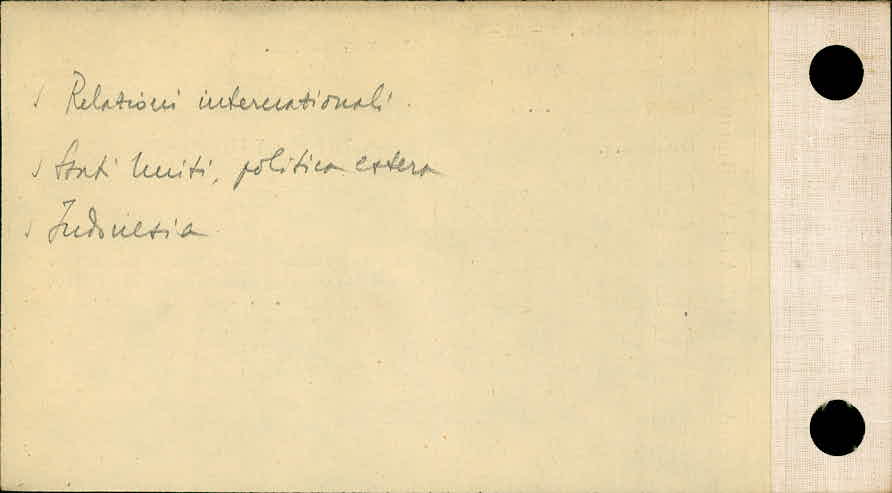 √ Relazioni internazionali.
√ Stati Uniti, politica estera
√ Indonesia